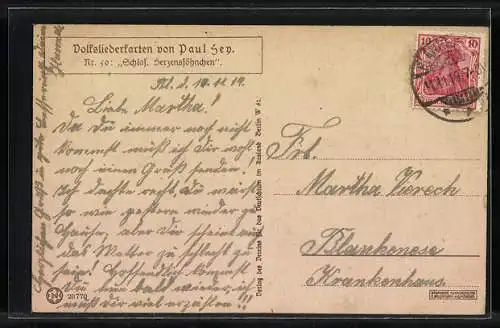 Volksliederkarten von Paul Hey.
Nr. 50: „Schlaf, Herzenssöhnchen“.
d. 10.11.19.
Liebe Martha!
Da Du immer noch nicht
kommst muß ich Dir wohl
noch einen Gruß senden!
Ich dachte recht, Du wärst
so wie gestern wieder zu
Hause, aber Dir scheint wohl
das Wetter zu schlecht zu
sein. Hoffentlich kommst
Du nun bald wieder, ich
muß dir viel erzählen!!!
Herzlichen Gruß u. gute Besserung Deine
Verlag des Vereins für das Deutschtum im Ausland Berlin W 62
20770
10 10
Frl.
Martha
Blankenese
Krankenhaus